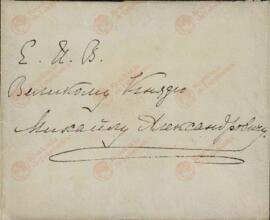 Е. И. В.
Великому Князю
Михаилу Александровичу